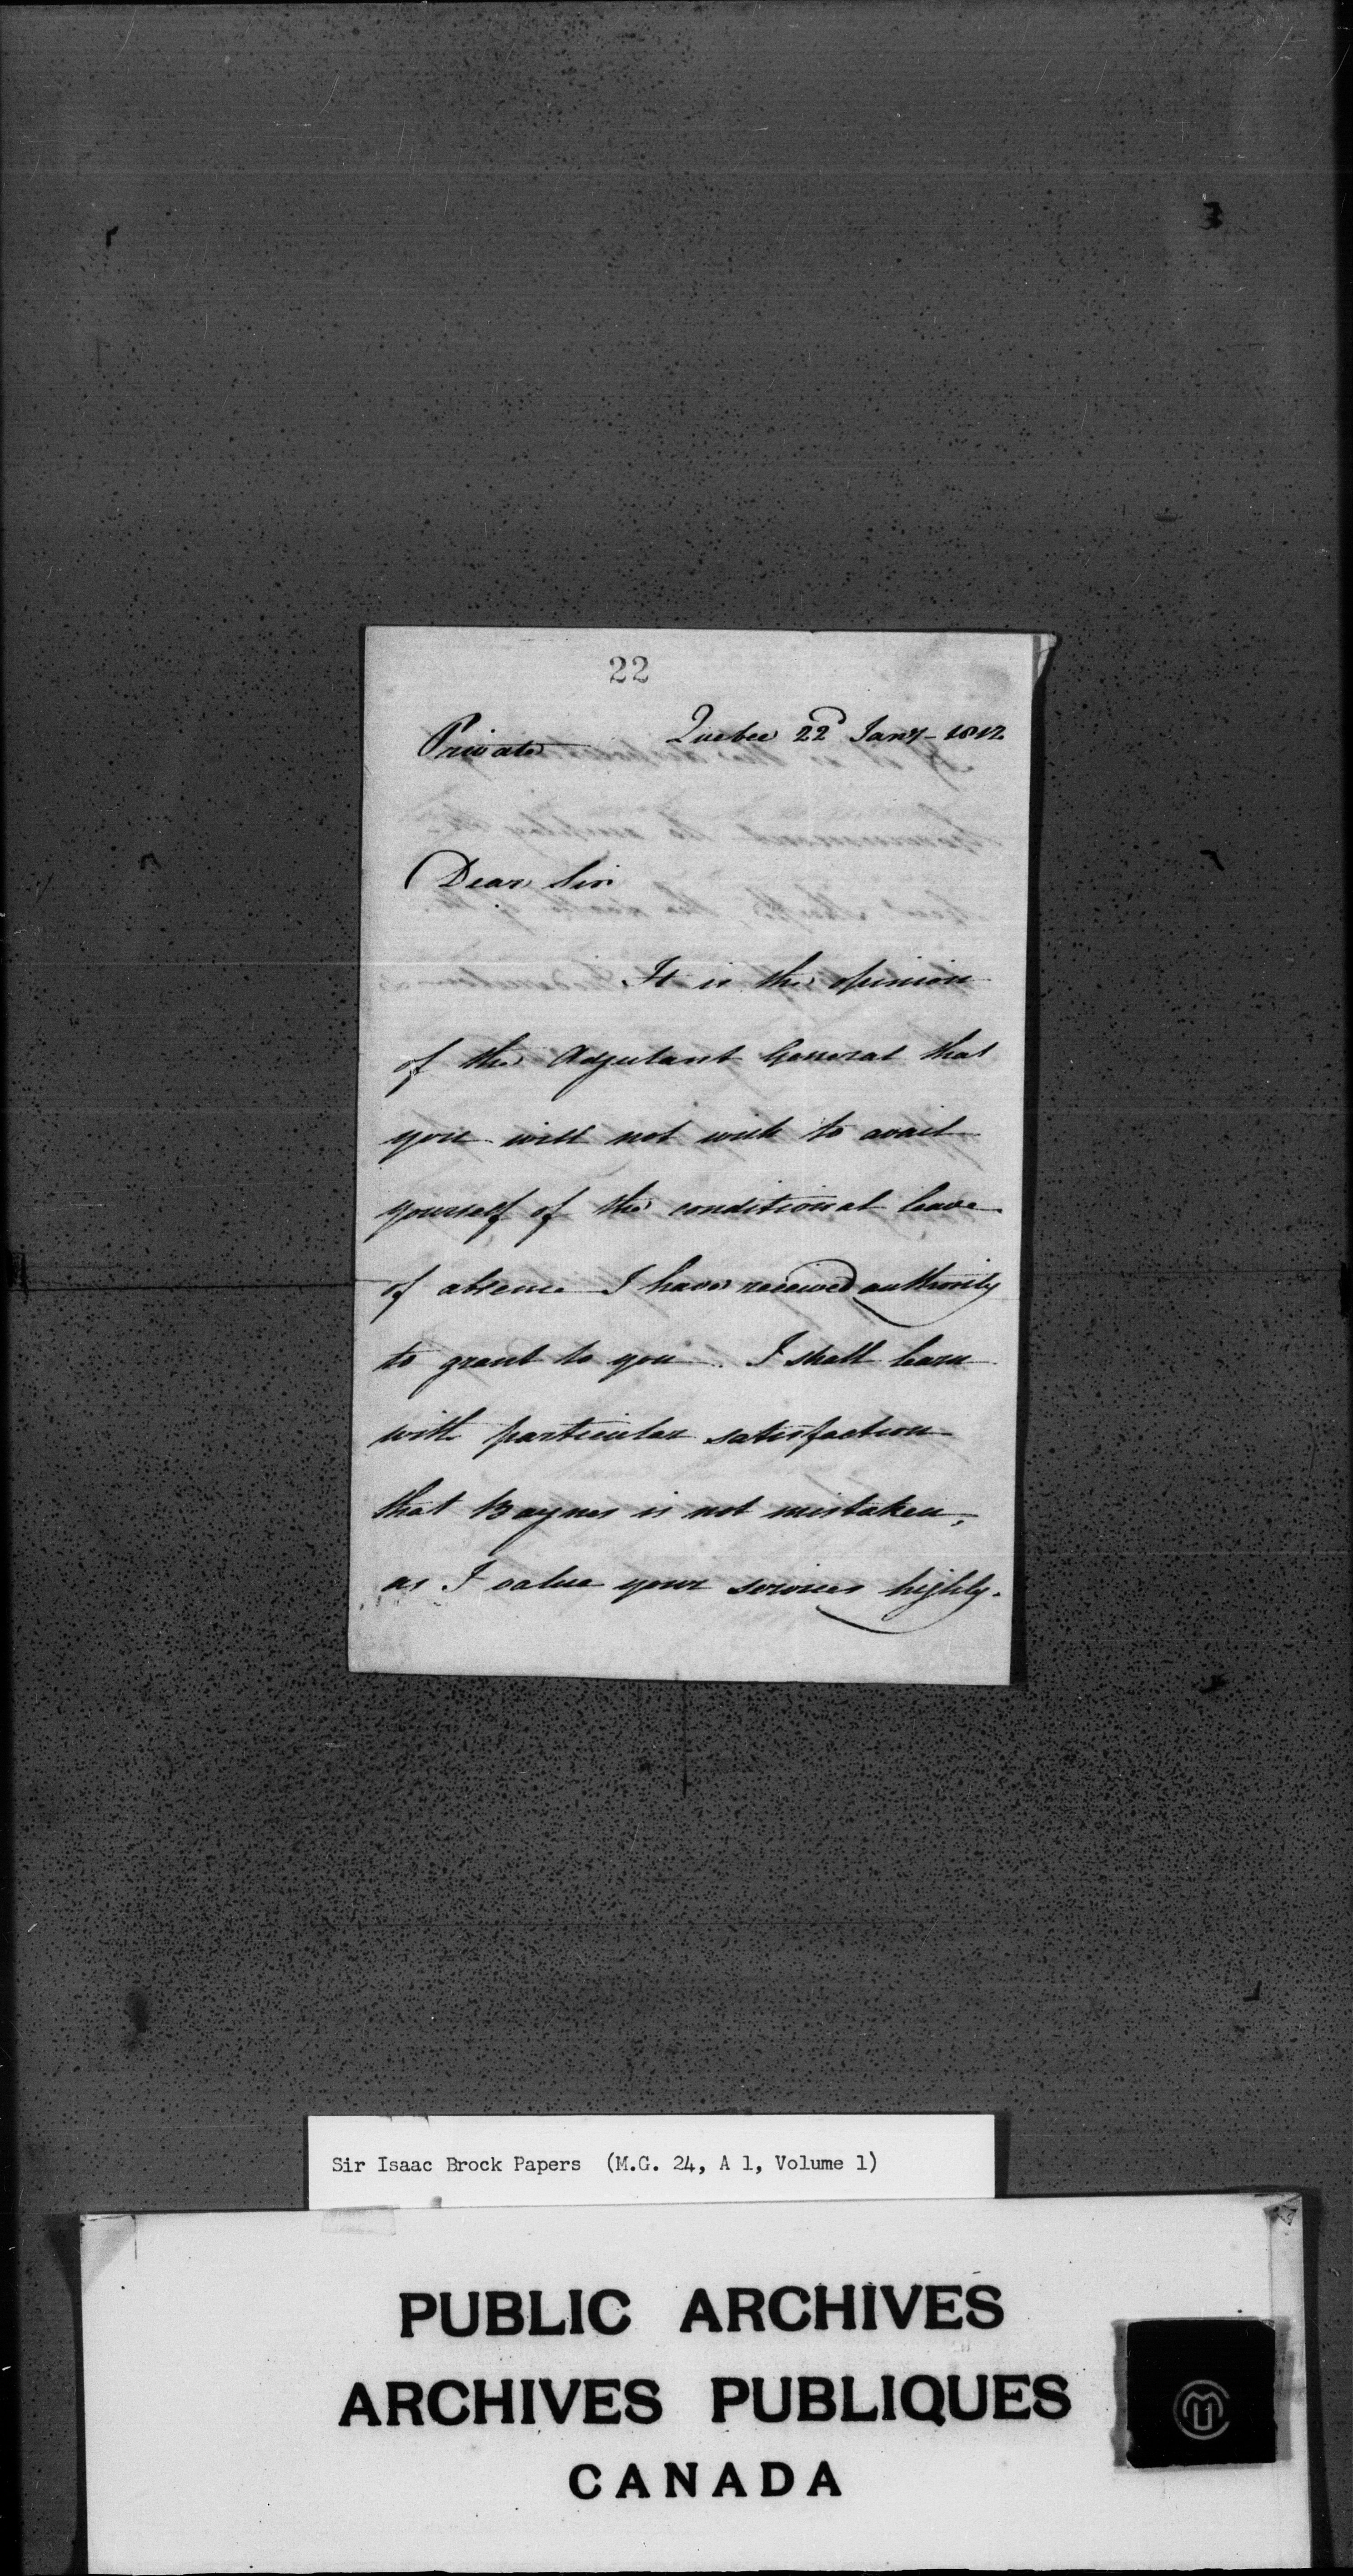 22
Private Quebec 22d Jany - 1812
Dear Sir
It is the opinion
of the Adjutant General that
you will not wish to avail
yourself of the conditional leave
of absence I have received authority
to grant to you. I shall learn
with particular satisfaction
that Baynes is not mistaken,
as I value your services highly.
Sir Isaac Brock Papers (M.G. 24, A 1, Volume 1)
PUBLIC ARCHIVES
ARCHIVES PUBLIQUES
CANADA